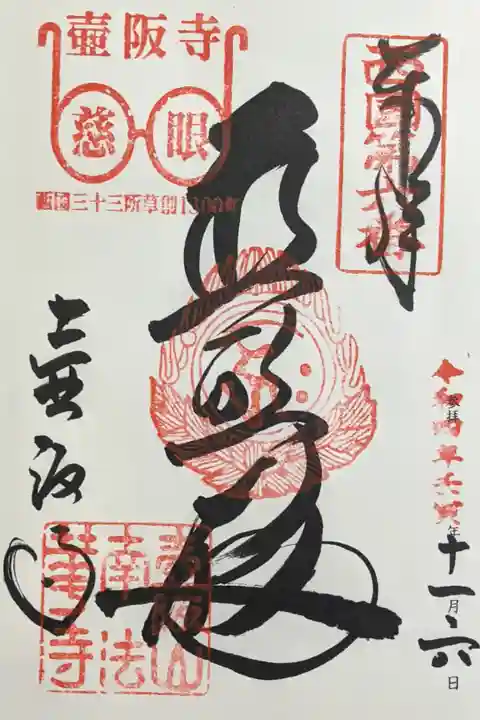 壷阪寺
慈眼
西國三十三所草創1300年
奉拝
西国第六番
普照殿
壷阪寺
壷阪山
南法
華寺
令和四年壬寅
参拝 年十一月六日